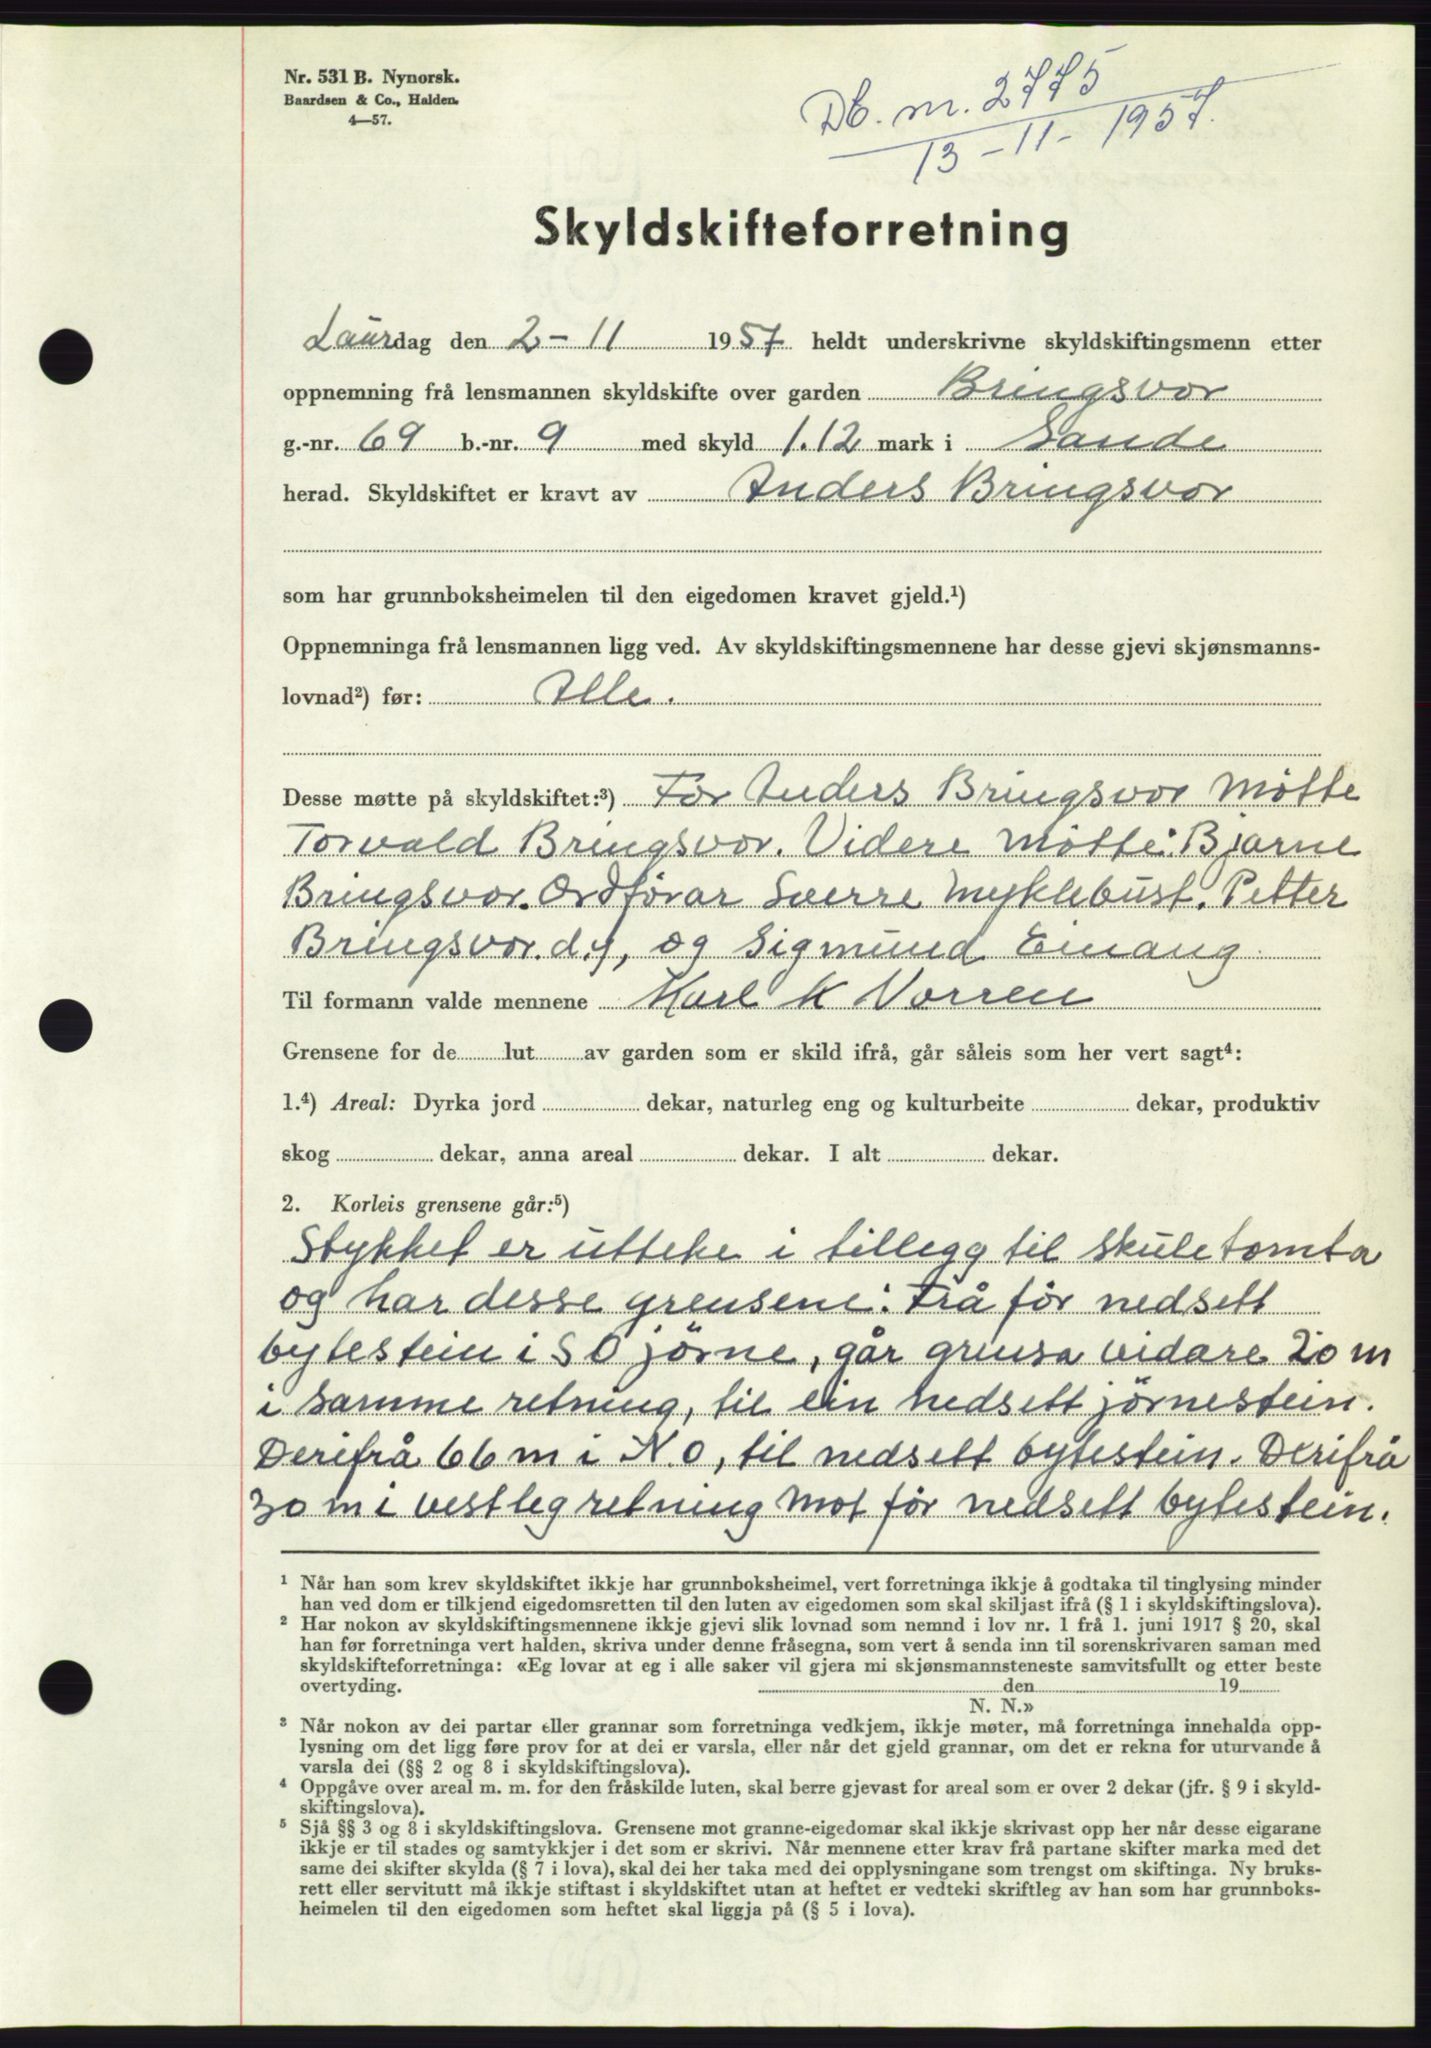 Nr. 531 B. Nynorsk.
Baardsen & Co., Halden.
4—57.
Db. nr. 2775
13-11-1957.
Skyldskifteforretning
Laurdag den 2-11 1957 heldt underskrivne skyldskiftingsmenn etter
oppnemning frå lensmannen skyldskifte over garden Bringsvor
g.-nr. 69 b.-nr. 9 med skyld 1.12 mark i Sande
herad. Skyldskiftet er kravt av Anders Bringsvor
som har grunnboksheimelen til den eigedomen kravet gjeld.¹)
Oppnemninga frå lensmannen ligg ved. Av skyldskiftingsmennene har desse gjevi skjønsmanns-
lovnad²) før: Alle.
Desse møtte på skyldskiftet:³) For Anders Bringsvor Møtte
Torvald Bringsvor. Videre møtte: Bjarne
Bringsvor. Ordförar Sverre Myklebust. Petter
Bringsvor. d.y, og Sigmund Einang.
Til formann valde mennene Karl K Vorren
Grensene for de lut av garden som er skild ifrå, går såleis som her vert sagt⁴:
1.⁴) Areal: Dyrka jord dekar, naturleg eng og kulturbeite dekar, produktiv
skog dekar, anna areal dekar. I alt dekar.
2. Korleis grensene går:⁵)
Stykket er utteke i tillegg til skuletomta
og har desse grensene: Frå för nedsett
bytestein i S O jörne, går grensa vidare 20 m
i samme retning, til ein nedsett jörnestein.
Derifrå 66 m i N.O, til nedsett bytestein. Derifrå
30 m i vestleg retning mot för nedsett bytestein.
¹ Når han som krev skyldskiftet ikkje har grunnboksheimel, vert forretninga ikkje å godtaka til tinglysing minder
han ved dom er tilkjend eigedomsretten til den luten av eigedomen som skal skiljast ifrå (§ 1 i skyldskiftingslova).
² Har nokon av skyldskiftingsmennene ikkje gjevi slik lovnad som nemnd i lov nr. 1 frå 1. juni 1917 § 20, skal
han før forretninga vert halden, skriva under denne fråsegna, som vert å senda inn til sorenskrivaren saman med
skyldskifteforretninga: «Eg lovar at eg i alle saker vil gjera mi skjønsmannsteneste samvitsfullt og etter beste
overtyding. den 19
N. N.»
³ Når nokon av dei partar eller grannar som forretninga vedkjem, ikkje møter, må forretninga innehalda opp-
lysning om det ligg føre prov for at dei er varsla, eller når det gjeld grannar, om det er rekna for uturvande å
varsla dei (§§ 2 og 8 i skyldskiftingslova).
⁴ Oppgåve over areal m. m. for den fråskilde luten, skal berre gjevast for areal som er over 2 dekar (jfr. § 9 i skyld-
skiftingslova).
⁵ Sjå §§ 3 og 8 i skyldskiftingslova. Grensene mot granne-eigedomar skal ikkje skrivast opp her når desse eigarane
ikkje er til stades og samtykkjer i det som er skrivi. Når mennene etter krav frå partane skifter marka med det
same dei skifter skylda (§ 7 i lova), skal dei her taka med dei opplysningane som trengst om skiftinga. Ny bruks-
rett eller servitutt må ikkje stiftast i skyldskiftet utan at heftet er vedteki skriftleg av han som har grunnboks-
heimelen til den eigedomen som heftet skal liggja på (§ 5 i lova).